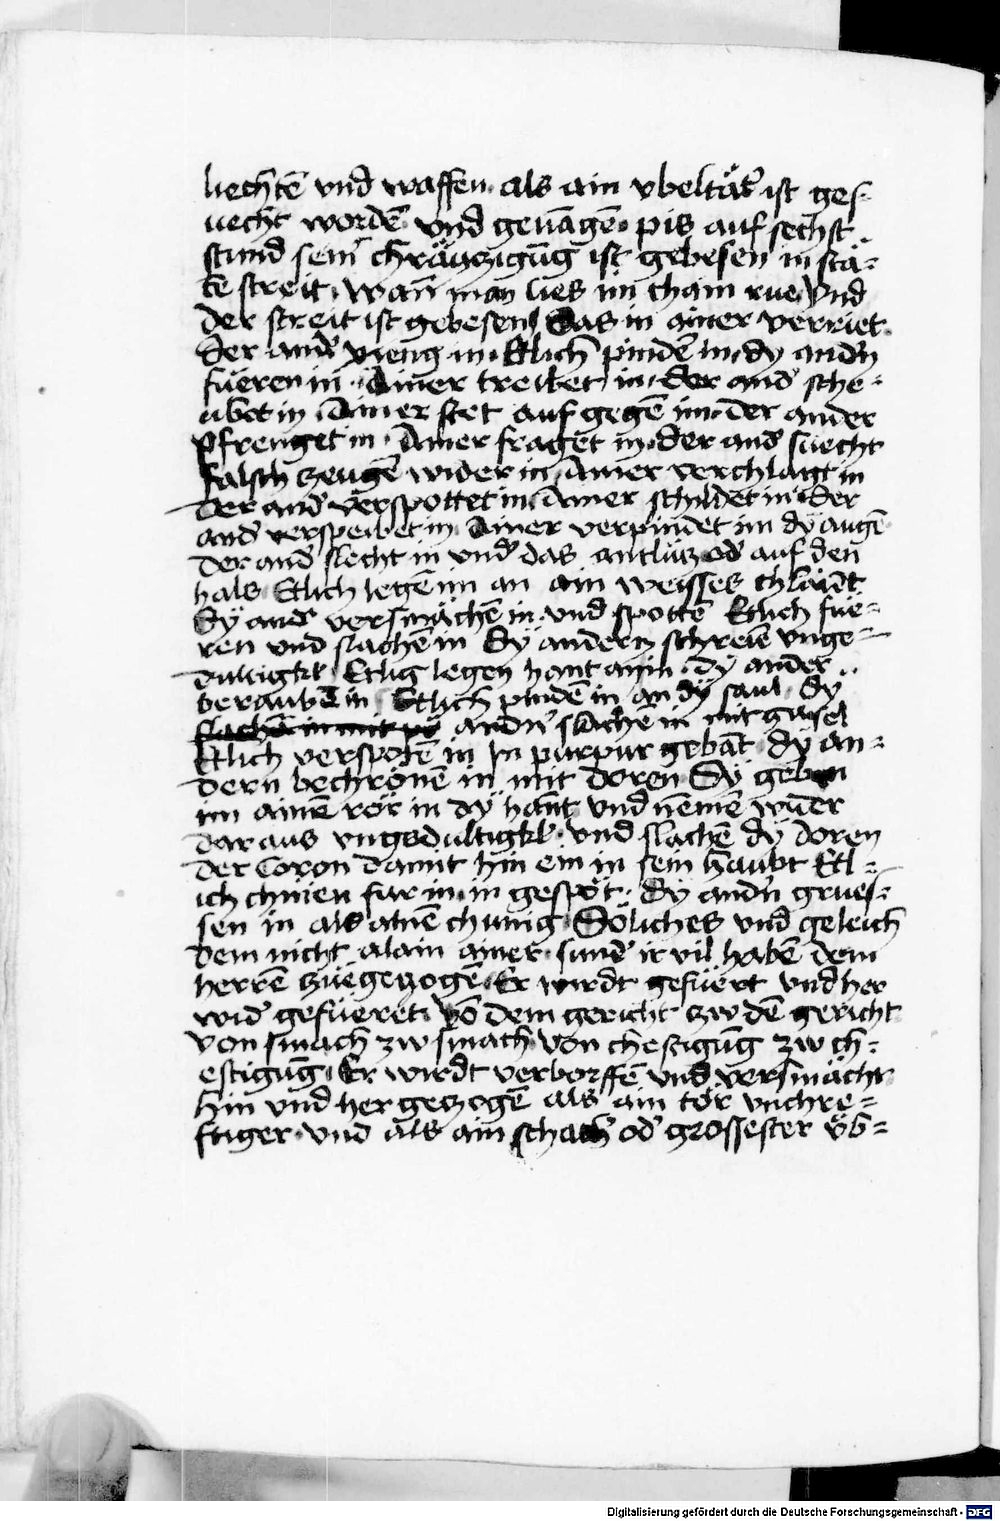 liechtē vnd waffen als ain vbeltät͛ ist ges-
uecht wordē vnd geuāgē pis auf sechst
stund sein͛ chräwczigūg ist gebesen in stä-
tē streit wan̄ man lies im chain rue Vnd
der streit ist gebesen das in ainer verriet
der and͛ vieng in Etlich pindē in dy andn̄
fueren in Ainer treibet in der and͛ sche-
ubet in Ainer stet auf gegē im der ander
Pfrenget in Ainer fraget in der and͛ suecht
falsch zeugē wider in Ainer verchlagt in
Der and͛ verspottet in Ainer schildet in der
and͛ verspeibet in Ainer verpindet im dÿ augē
Der and͛ slecht in vnd͛ das antlücz od͛ auf den
hals Etlich legē im an ain weisses chlaidt
Dÿ and͛ versmächē in vnd spottē Etlich fue-
ren vnd slachē in Dÿ andern schreiē vnge-
dultigkl Etlig legen hant an in dÿ ander
beraubē in Etlich pindē in an dÿ saul dÿ
slachē in mit andn̄ slachē in mit gaisel
Etlich verspotē in In purpur gebāt dÿ an-
dern bechrönē in mit doren Dÿ geben
im ainē rör in dÿ hant vnd nēmē wider
dar aus vngedultigkl vnd slachē dÿ doren
der Coron damit hin ein in sein haubt Etl-
ich chnien fur in in gespöt Dÿ andn̄ grues-
sen in als ainē chunig Söliches vnd geleich
dem nicht alain ainer sund͛ ir vil habē dem
herrē zuegeczogē Er wirdt gefuert vnd her
wid͛ gefueret Vō dem gericht zw dē gericht
Von smach zw smach von chestigūg zw ch-
estigūg Er wirdt verborffē vnd versmächt
hin vnd her geczogē als ain tör vnchre-
ftiger vnd als ain schach͛ od͛ grossester vb-
Digitalisierung gefördert durch die Deutsche Forschungsgemeinschaft - DFG